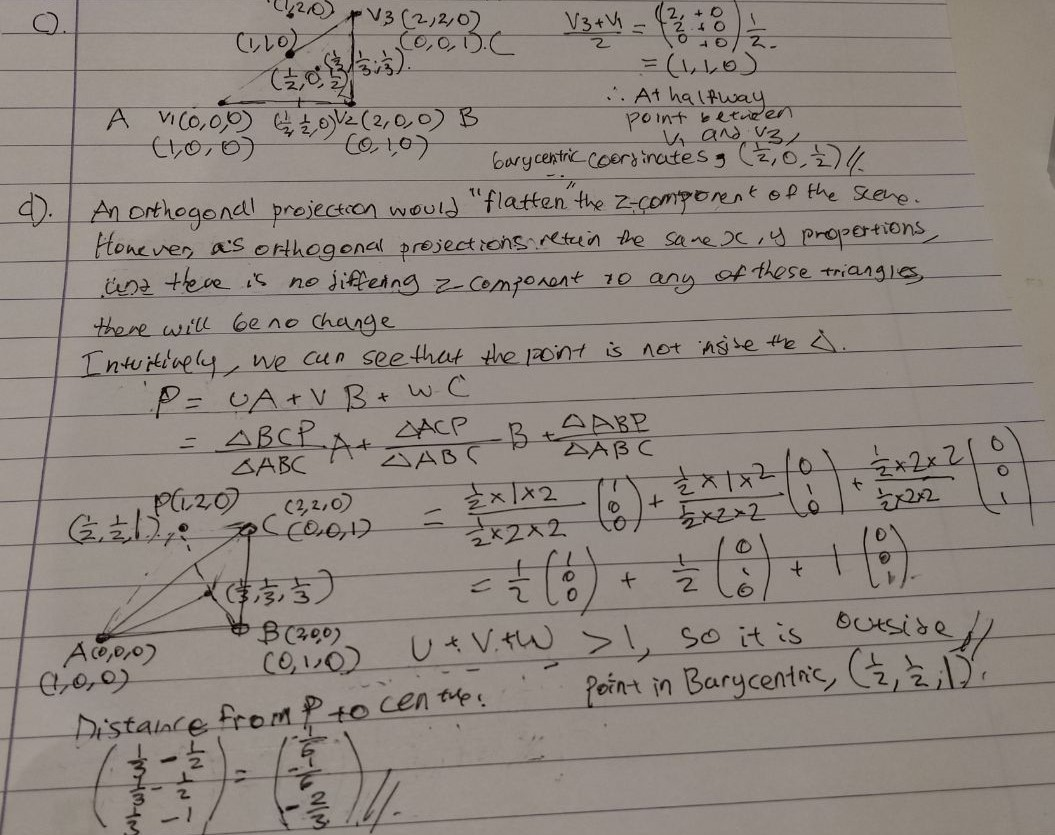 c).
(1,2,0)
V3 (2,2,0)
(0,0,1). C
(1,1,0)
(1/3, 1/3, 1/3).
(1/2, 0, 1/2)
A V1(0,0,0) (1/2, 1/2, 0) V2(2,0,0) B
(1,0,0) (0,1,0)
V3+V1 / 2 = (2 +0, 2 +0, 0 +0) 1/2.
= (1,1,0)
∴ At halfway
point between
V1 and V3,
barycentric coordinates (1/2, 0, 1/2)//.
d). An orthogonal projection would "flatten" the z-component of the scene.
However, as orthogonal projections retain the same x, y proportions,
and there is no differing z-component to any of these triangles,
there will be no change
Intuitively, we can see that the point is not inside the Δ.
P = UA + VB + WC
= ΔBCP/ΔABC A + ΔACP/ΔABC B + ΔABP/ΔABC
P(1,2,0) C (2,2,0)
(1/2, 1/2, 1) (0,0,1)
(1/3, 1/3, 1/3)
A(0,0,0) B(2,0,0)
(1,0,0) (0,1,0)
= (1/2×1×2)/(1/2×2×2) (1, 0, 0) + (1/2×1×2)/(1/2×2×2) (0, 1, 0) + (1/2×2×2)/(1/2×2×2) (0, 0, 1)
= 1/2 (1, 0, 0) + 1/2 (0, 1, 0) + 1 (0, 0, 1).
U + V + W > 1, so it is outside//
Point in Barycentric, (1/2, 1/2, 1).
Distance from P to centre:
(1/3 - 1/2, 1/3 - 1/2, 1/3 - 1) = (-1/6, -1/6, -2/3)//.